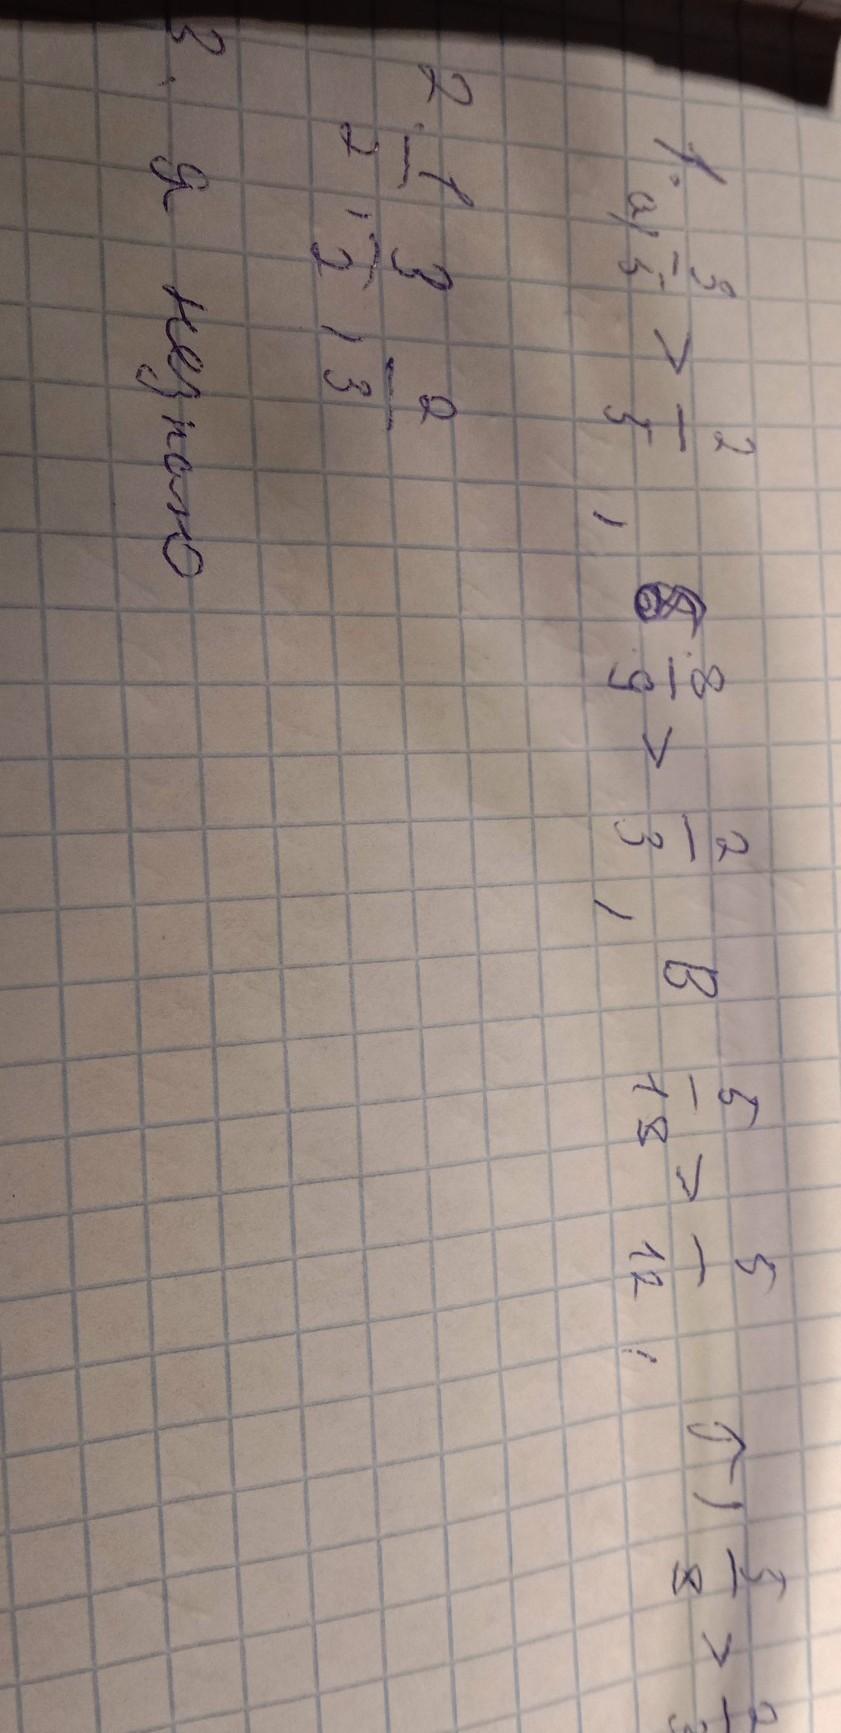 1. а) 3/5 > 2/5, б 8/9 > 2/3, В 5/18 > 5/12, г) 5/8 >
2. 1/2, 3/2, 2/3
3. я незнаю